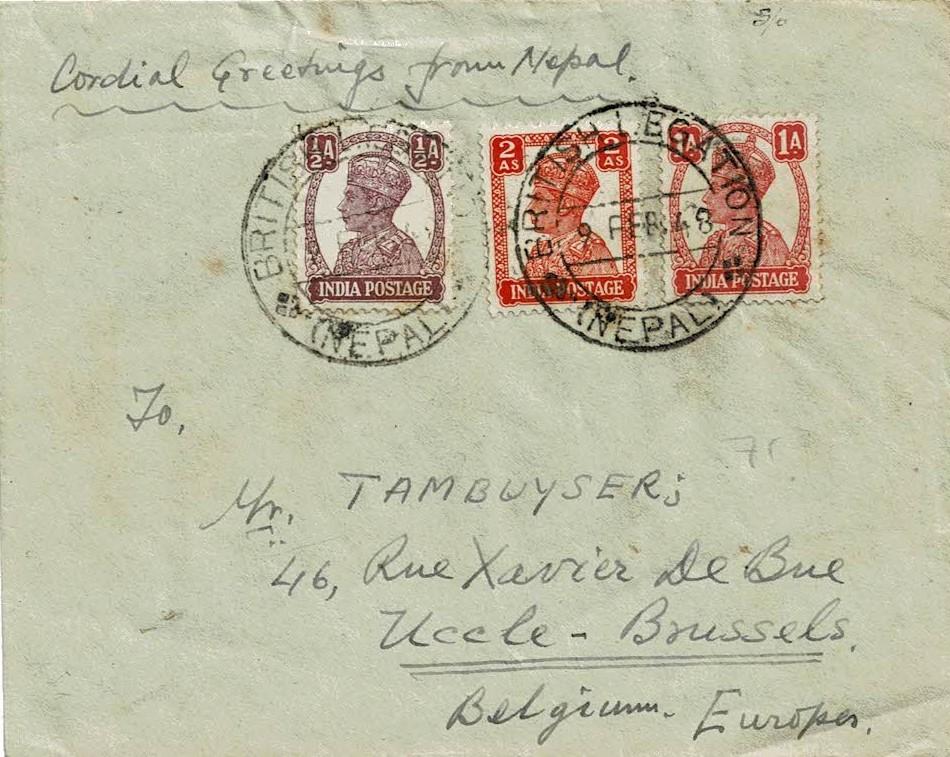 Cordial Greetings from Nepal.
½A ½A
INDIA POSTAGE
2 AS 2 AS
INDIA POSTAGE
1A 1A
INDIA POSTAGE
BRITISH
(NEPAL)
BRITISH LEGATION
9 FEB 48
(NEPAL)
To,
Mr. TAMBUYSER;
46, Rue Xavier De Bue
Uccle - Brussels.
Belgium. Europe.